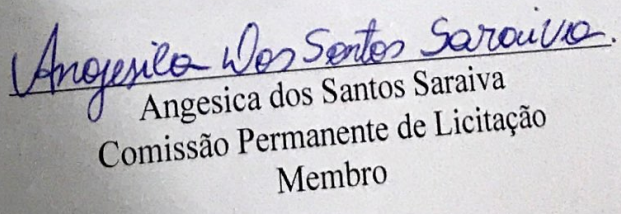 Angesica Dos Santos Saraiva.
Angesica dos Santos Saraiva
Comissão Permanente de Licitação
Membro